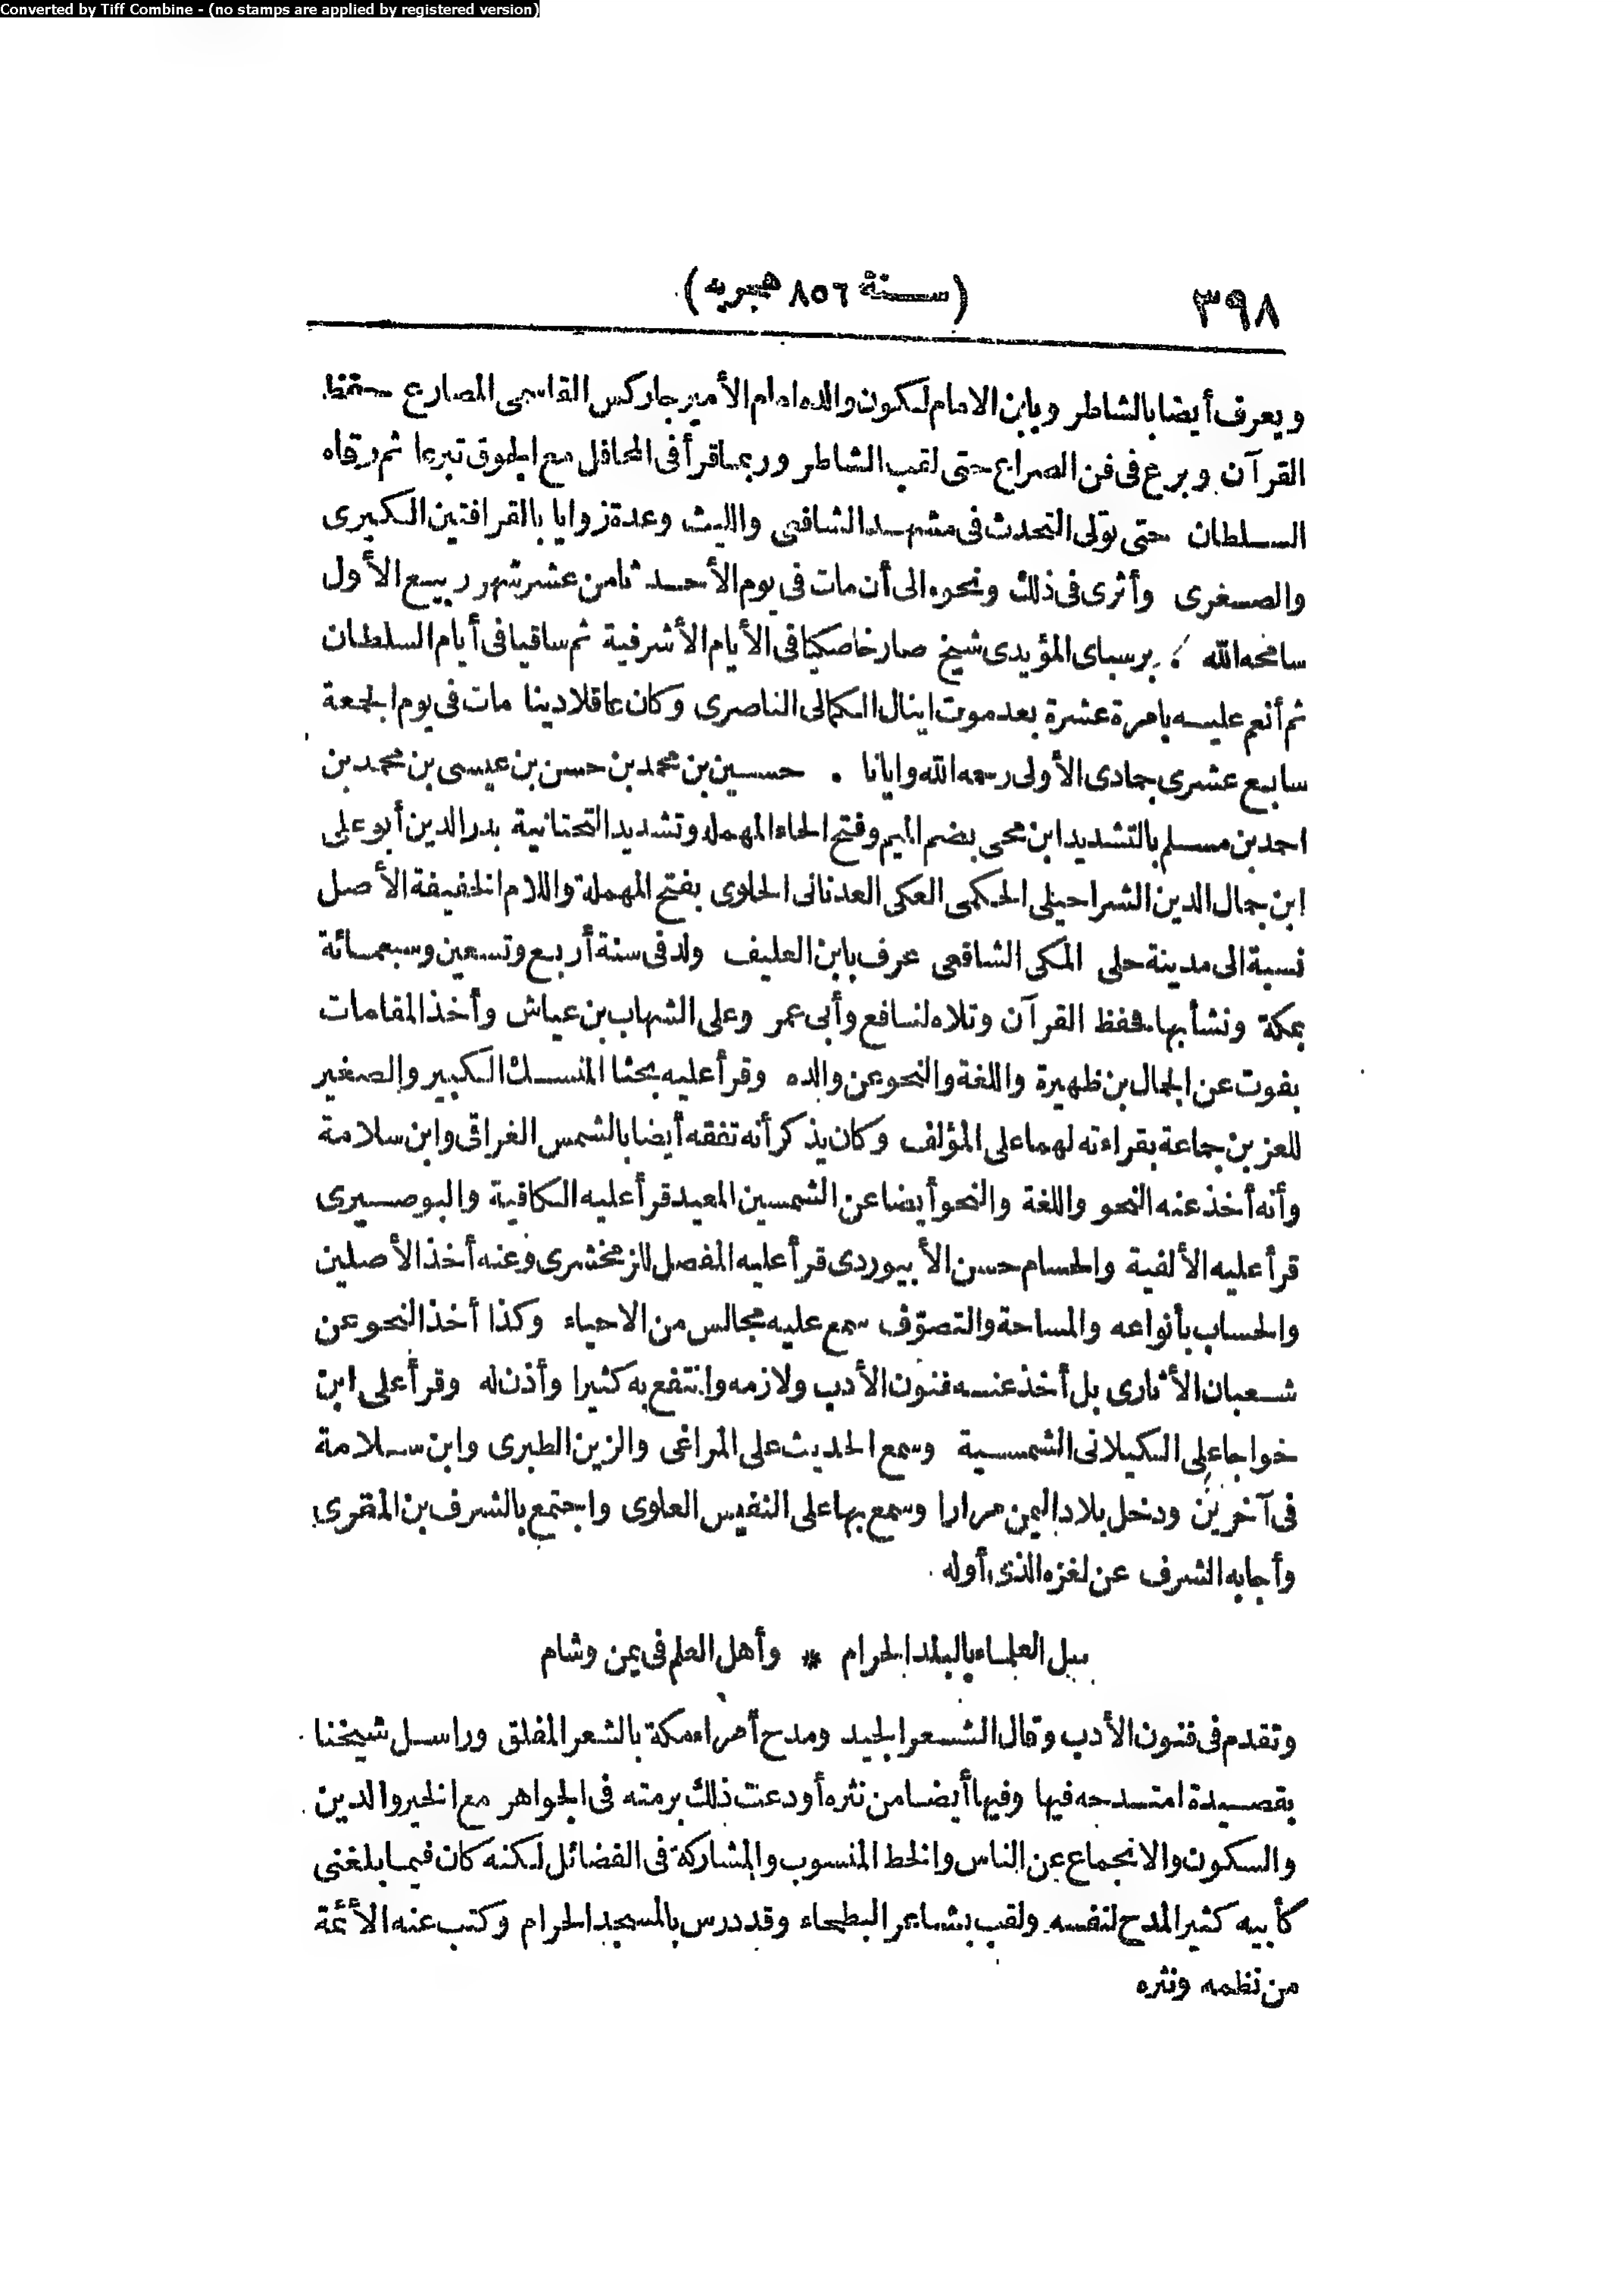 Converted by Tiff Combine - (no stamps are applied by registered version)
٣٩٨ (سنة ٨٥٦ هجريه)
ويعرف أيضا بالشاطر وبابن الامام لكون والده امام الأمير جاركس القاسمى المصارع حفظ
القرآن وبرع فى فن الصراع حتى لقب الشاطر وربما قرأ فى المحافل مع الجوق تبرعا ثم رقاه
السلطان حتى تولى التحدث فى مشهد الشافعى والليث وعدة زوايا بالقرافتين الكبرى
والصغرى وأثرى فى ذلك ونحوه الى أن مات فى يوم الأحد ثامن عشر شهر ربيع الأول
سامحه الله . برسباى المؤيدى شيخ صار خاصكيا فى الأيام الأشرفية ثم ساقيا فى أيام السلطان
ثم أنعم عليه بامرة عشرة بعد موت اينال الكمالى الناصرى وكان عاقلا دينا مات فى يوم الجمعة
سابع عشرى جمادى الأولى رحمه الله وايانا . حسين بن محمد بن حسن بن عيسى بن محمد بن
احمد بن مسلم بالتشديد ابن محى بضم الميم وفتح الحاء المهملة وتشديد التحتانية بدر الدين أبو على
ابن جمال الدين الشراحيلى الحكمى العكى العدنانى الحلوى بفتح المهملة واللام الخفيفة الأصل
نسبة الى مدينة حلى المكى الشافعى عرف بابن العليف ولد فى سنة أربع وتسعين وسبعمائة
بمكة ونشأ بها فحفظ القرآن وتلاه لنافع وأبى عمر وعلى الشهاب بن عياش وأخذ المقامات
بفوت عن الجمال بن ظهيرة واللغة والنحو عن والده وقرأ عليه بحثا المنسك الكبير والصغير
للعز بن جماعة بقراءته لهما على المؤلف وكان يذكر أنه تفقه أيضا بالشمس الغراقى وابن سلامة
وأنه أخذ عنه النحو واللغة والنحو أيضا عن الشمسين المعيد قرأ عليه الكافية والبوصيرى
قرأ عليه الألفية والحسام حسن الأبيوردى قرأ عليه المفصل للزمخشرى وعنه أخذ الأصلين
والحساب بأنواعه والمساحة والتصوّف سمع عليه مجالس من الاحياء وكذا أخذ النحو عن
شعبان الأثارى بل أخذ عنه فنون الأدب ولازمه وانتفع به كثيرا وأذن له وقرأ على ابن
خواجا على الكيلانى الشمسية وسمع الحديث على المراغى والزين الطبرى وابن سلامة
فى آخرين ودخل بلاد اليمن مرارا وسمع بها على النفيس العلوى واجتمع بالشرف بن المقرى
وأجابه الشرف عن لغزه الذى أوله .
سل العلماء بالبلد الحرام * وأهل العلم فى يمن وشام
وتقدم فى فنون الأدب وقال الشعر الجيد ومدح أمراء مكة بالشعر المفلق وراسل شيخنا
بقصيدة امتدحه فيها وفيها أيضا من نثره أودعت ذلك برمته فى الجواهر مع الخير والدين
والسكون والانجماع عن الناس والخط المنسوب والمشاركة فى الفضائل لكنه كان فيما بلغنى
كأبيه كثير المدح لنفسه ولقب بشاعر البطحاء وقد درس بالمسجد الحرام وكتب عنه الأئمة
من نظمه ونثره